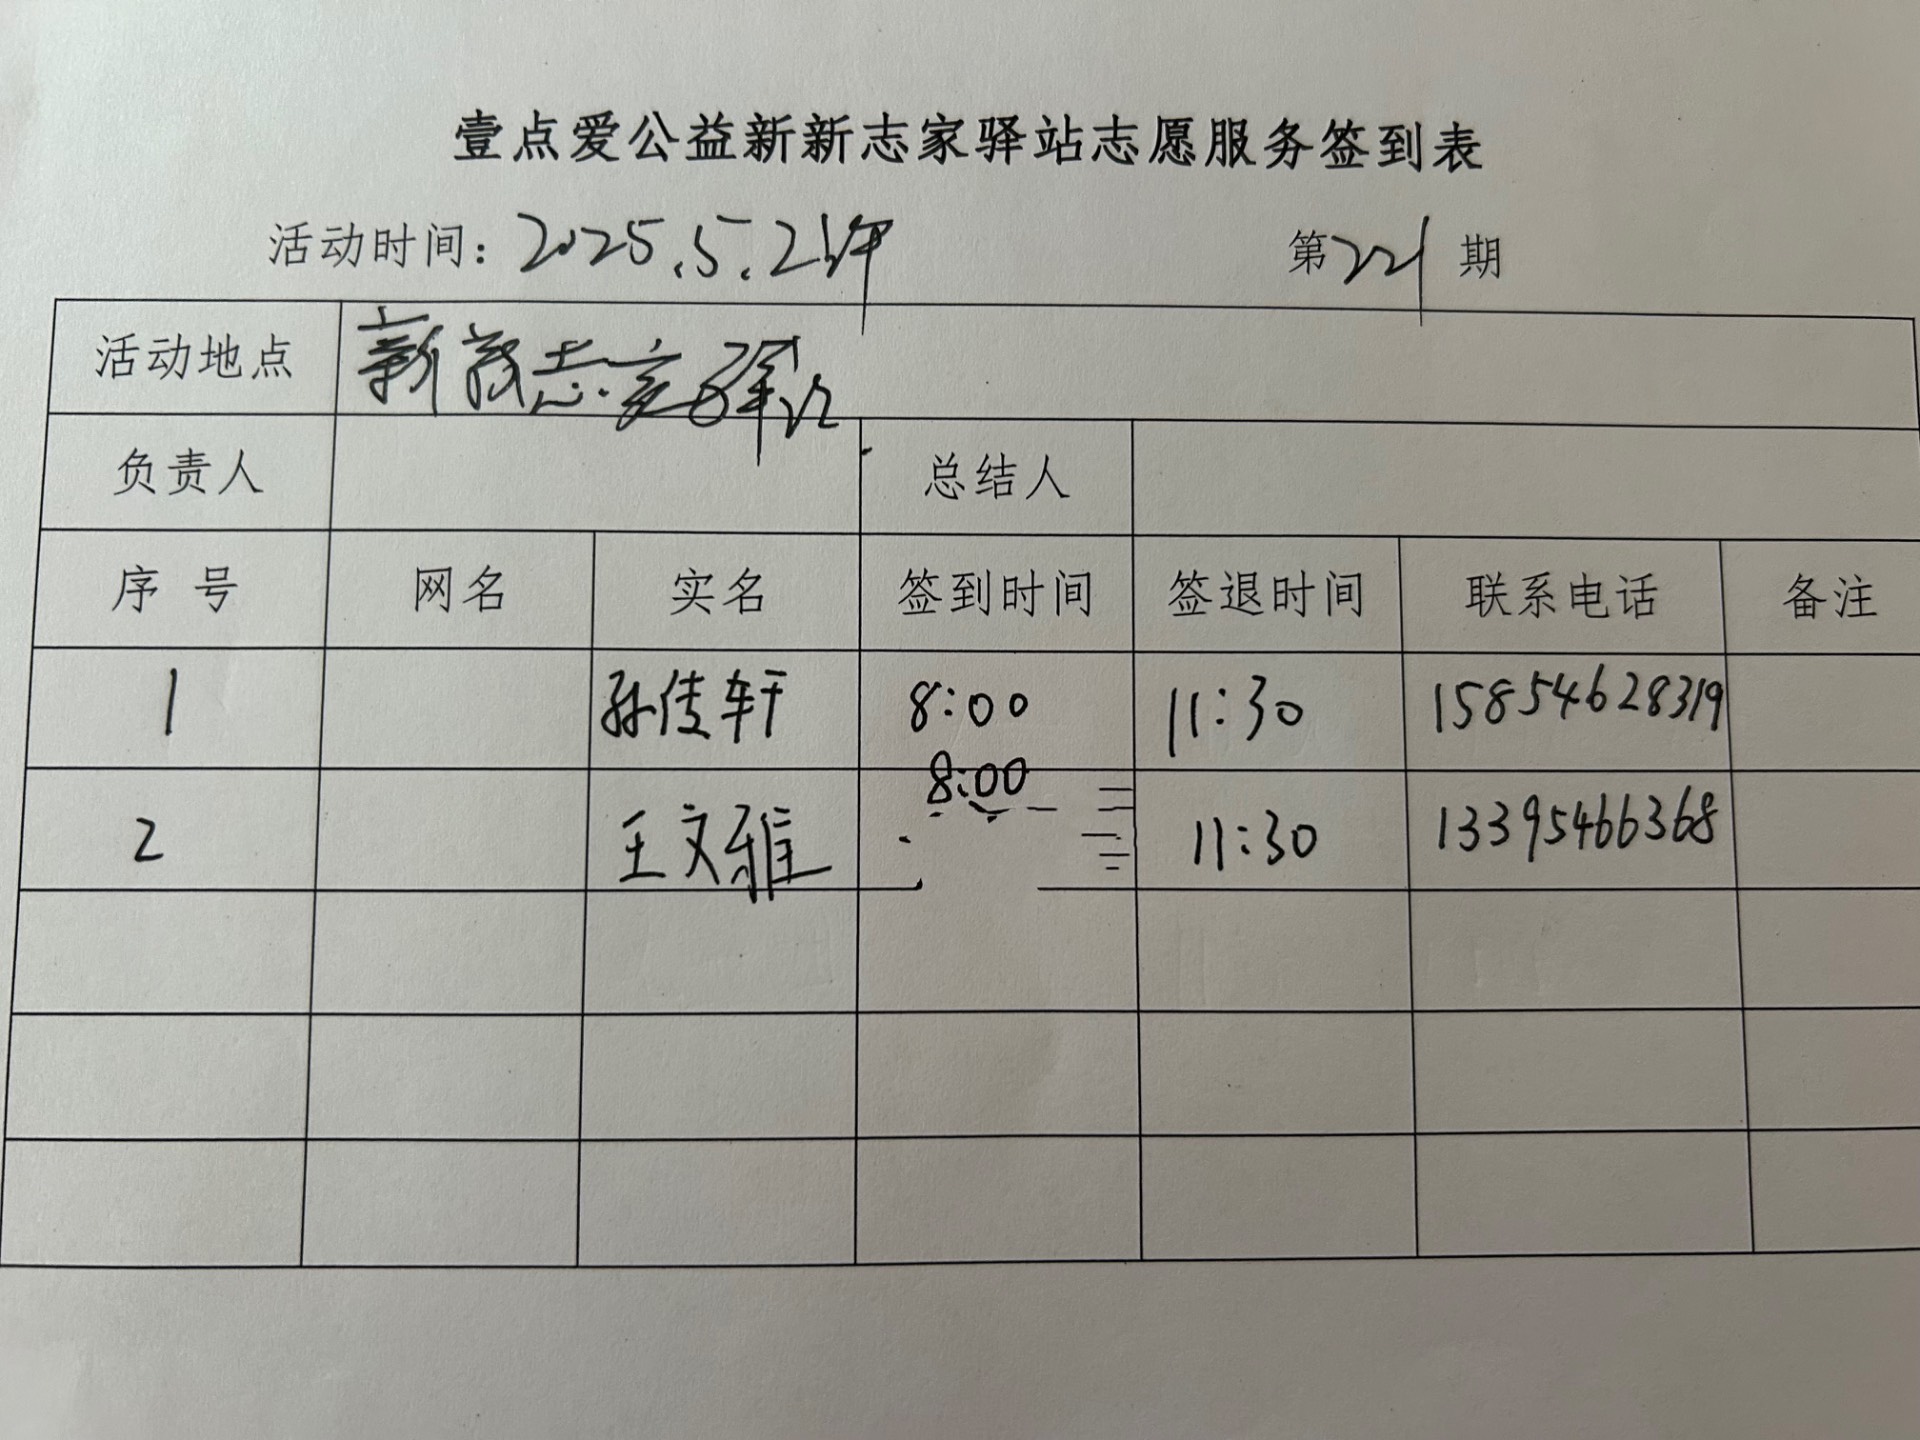 壹点爱公益新新志家驿站志愿服务签到表
活动时间: 2025.5.21 第221期
活动地点 新新志家驿站
负责人 总结人
序号 网名 实名 签到时间 签退时间 联系电话 备注
1 孙佳轩 8:00 11:30 15854628319
2 王文雅 8:00 11:30 13395466368